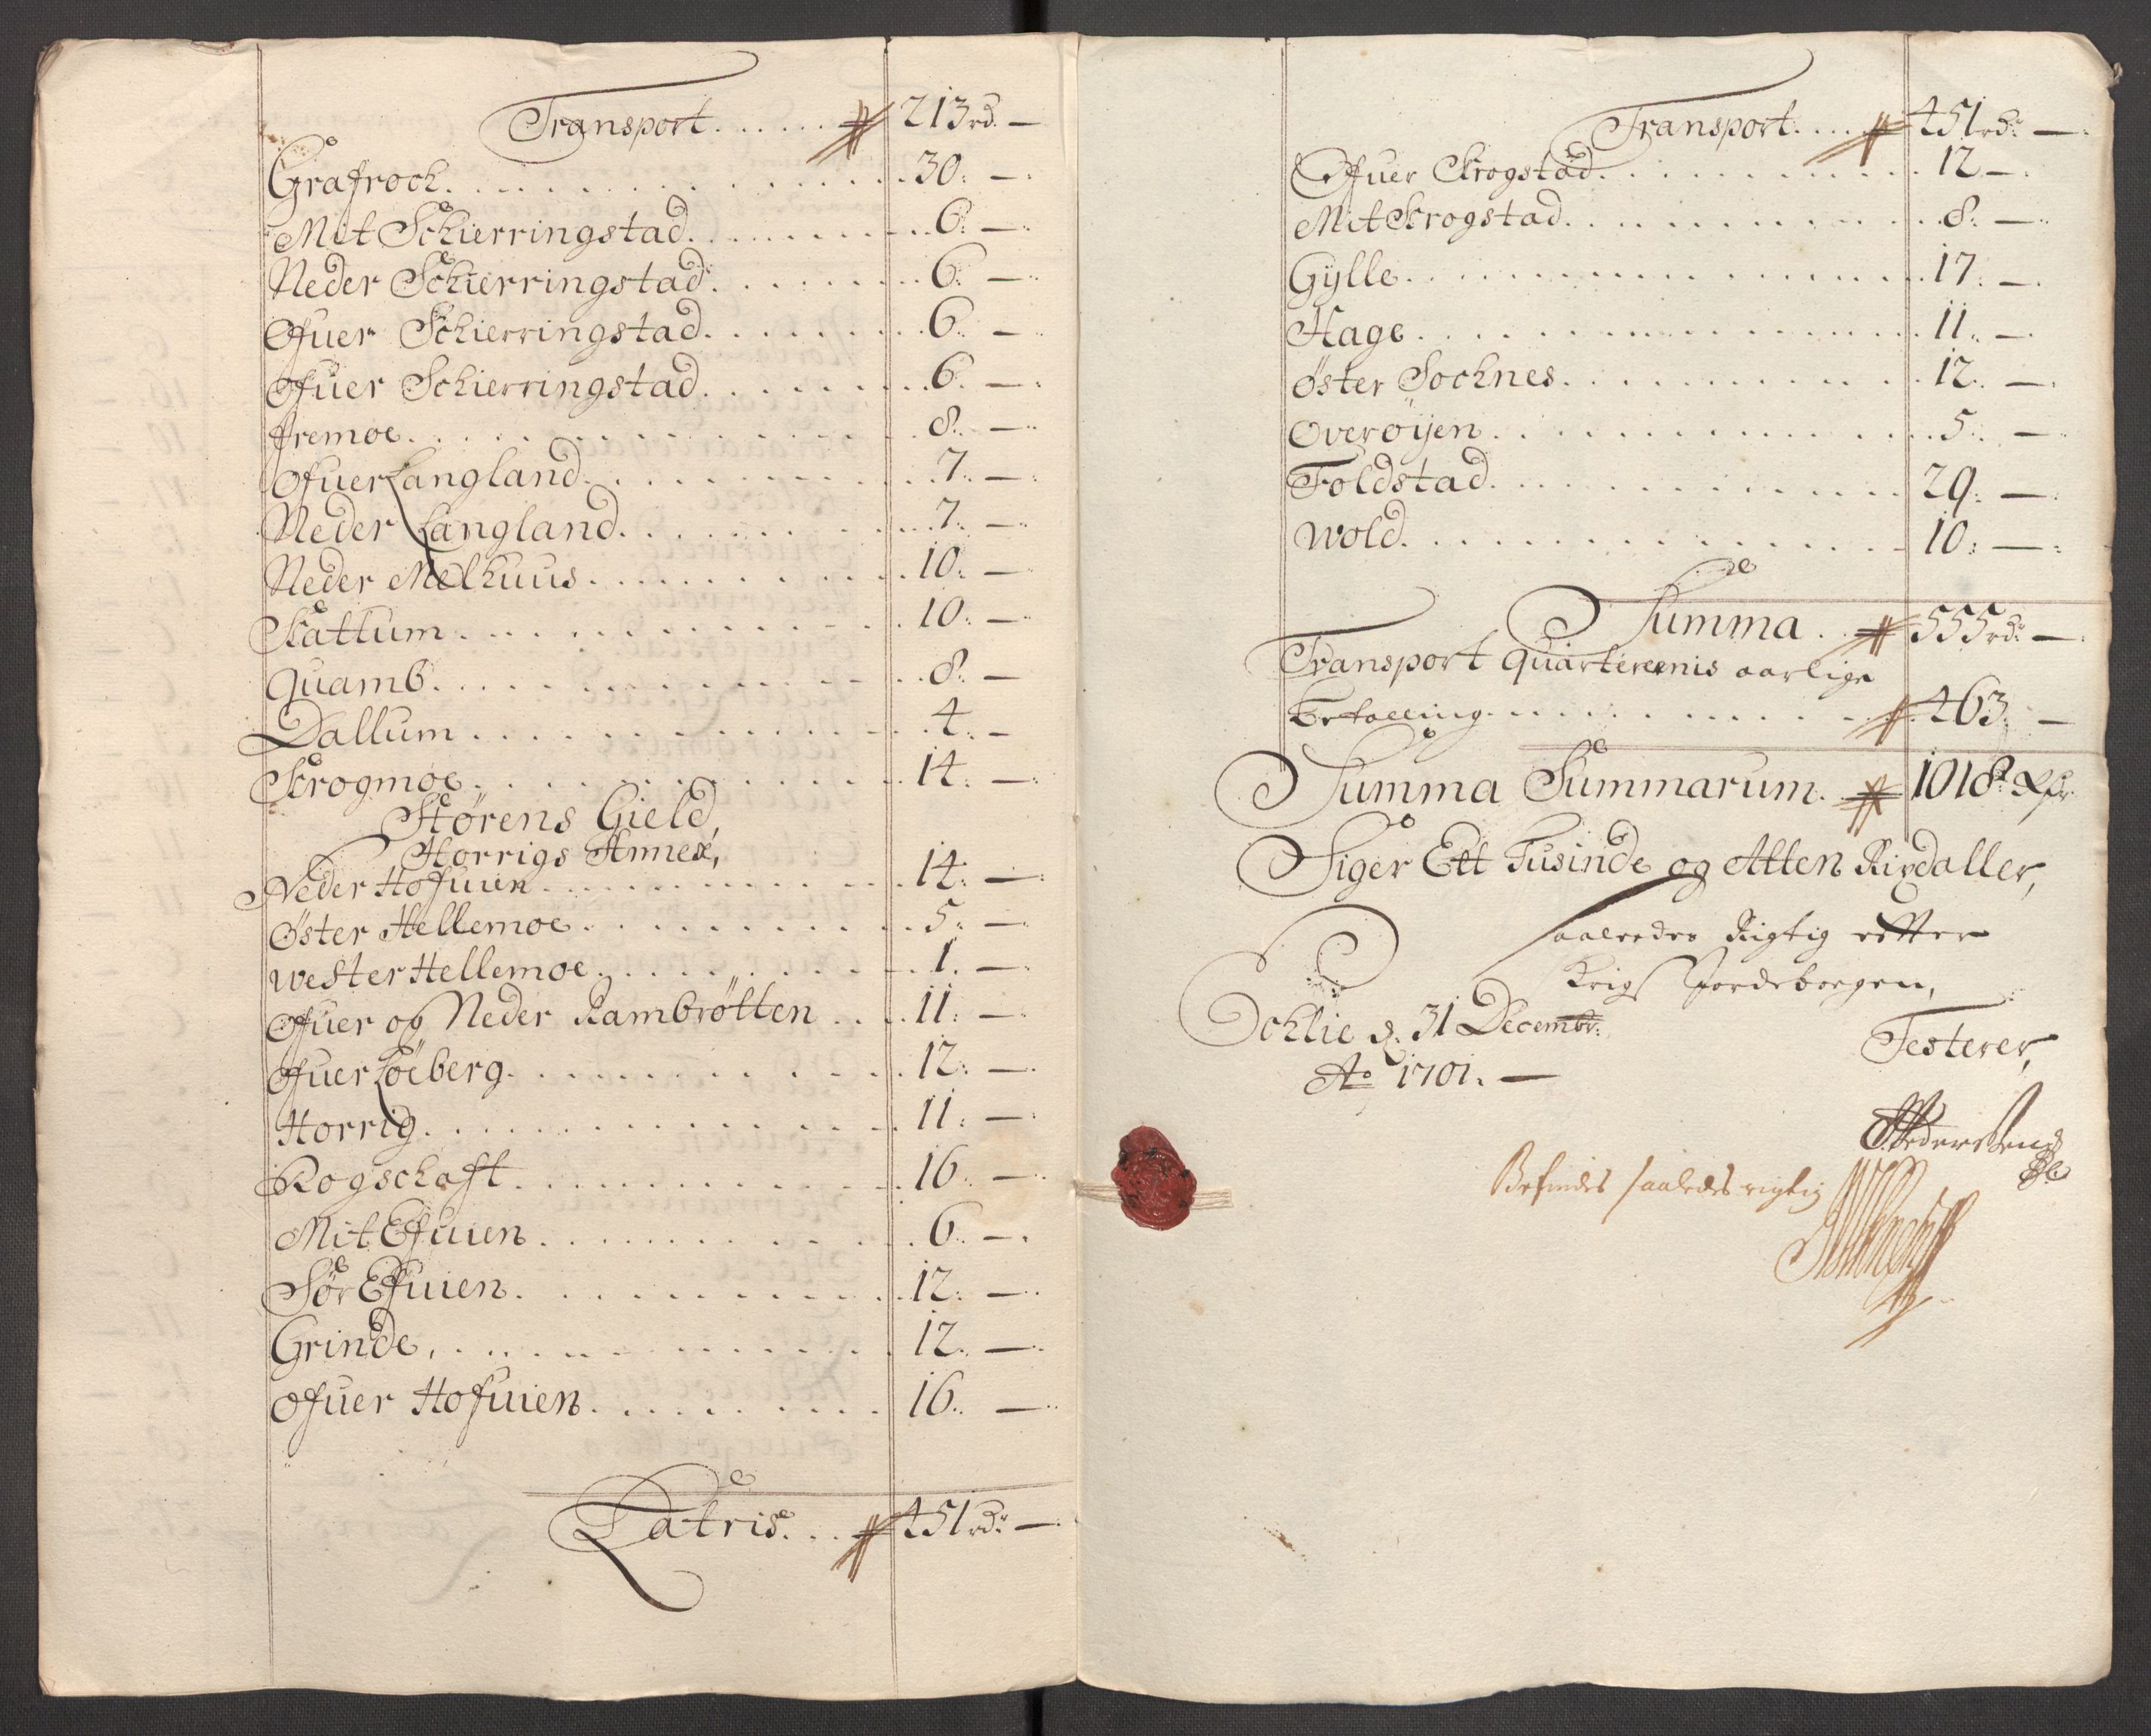 Transport 213 rd. —
Grafroch 30: —
Mit Schierringstad 6: —
Neder Schierringstad 6: —
Ofuer Schierringstad 6: —
Ofuer Schierringstad 6. —
fremoe 8: —
Ofuer Langland 7: —
Neder Langland 7: —
Neder Melhuus 10: —
Skattum 10: —
Quamb 8: —
Dallum 4: —
Skrogmoe 14: —
Størens Gield,
Horrigs Annex,
Neder Hofuien 14: —
Øster Hellemoe 5: —
wester Hellemoe 1. —
Ofuer og Neder Rambrötten 11: —
Ofuer Löeberg 12: —
Horrig 11: —
Rogschaft 16: —
Mit Efuien 6: —
Sör Efuien 12: —
Grinde, 12: —
Ofuer Hofuien 16: —
Latris 451 rdr —
Transport 451 rdr —
Ofuer Skrogstad 12 —
Mit Skrogstad 8: —
Gylle 17: —
Hage 11: —
Øster Sochnes 12: —
Overøijen 5: —
Foldstad 29: —
Wold 10: —
Summa 555 rdr —
Transport Quarterernis aarlige
Betalling 463: —
Summa Summarum 1018
Siger Ett Tusinde og Atten Rixdaller,
saaledes Rigtig efter
Krigs Jordebogen,
Sohlie d. 31 Decembr:
Ao 1701. —
Testerer,
Befindes saaledes rigtig